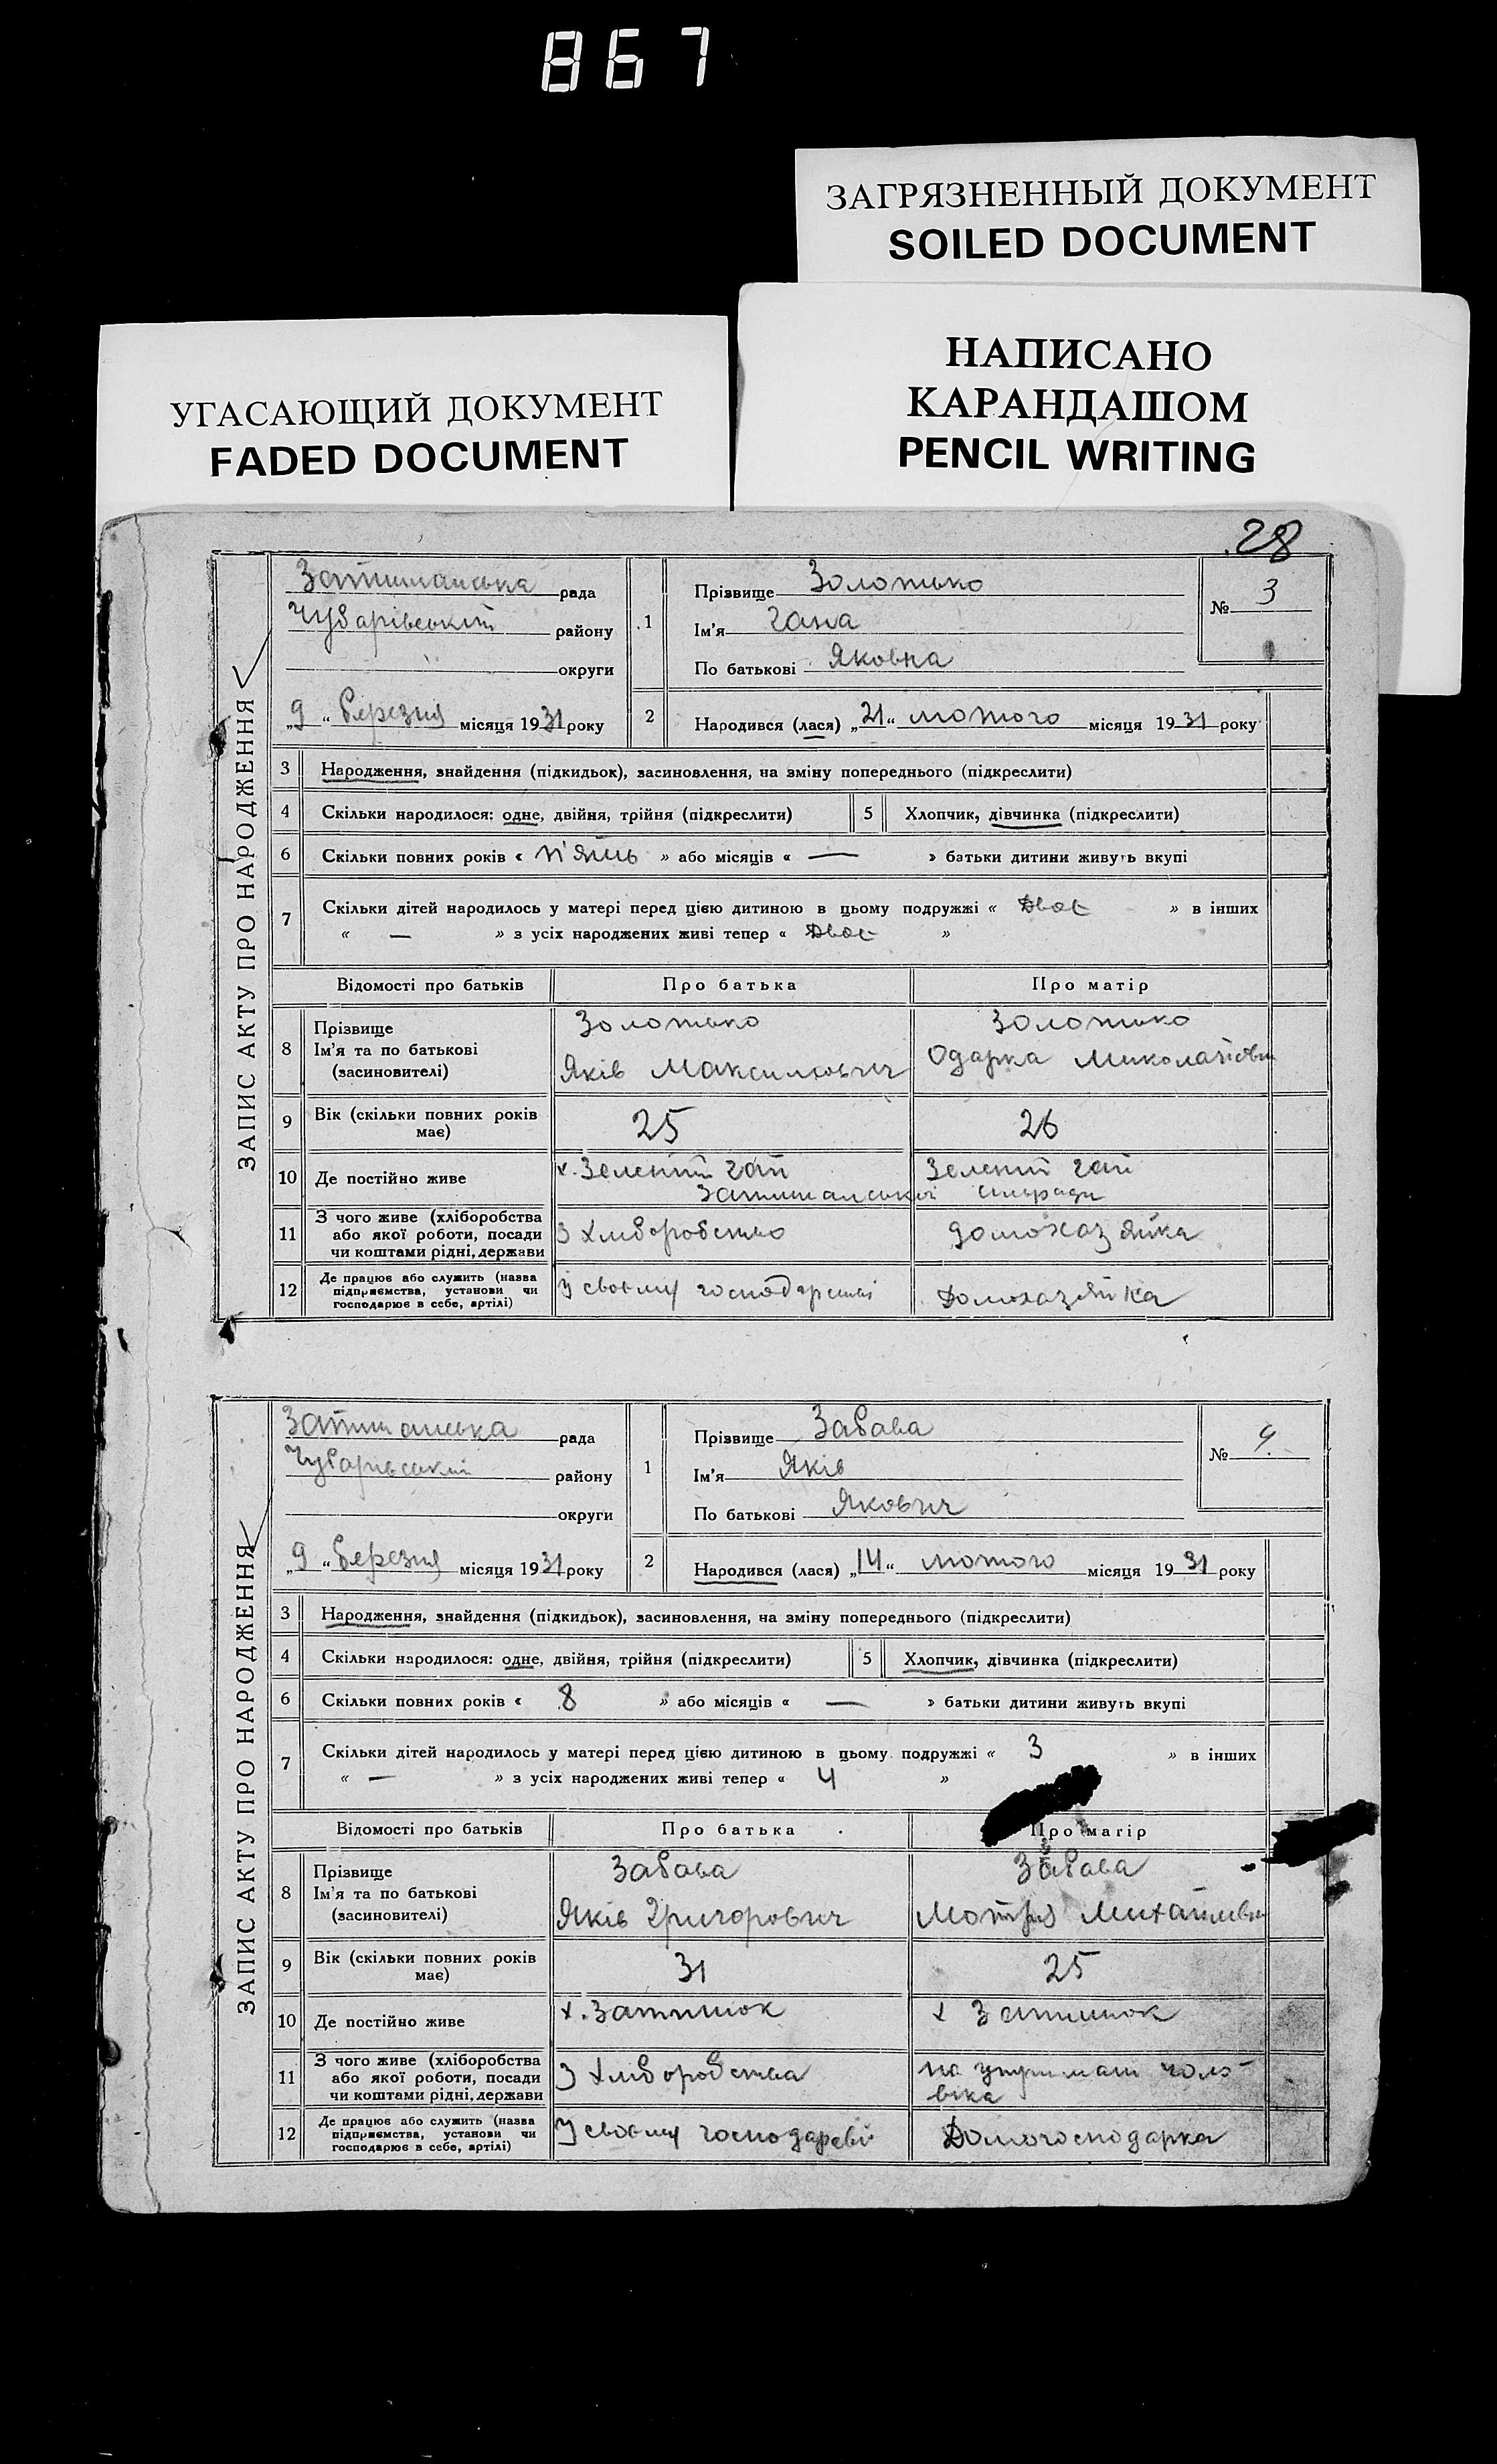 867
ЗАГРЯЗНЕННЫЙ ДОКУМЕНТ
SOILED DOCUMENT
НАПИСАНО
КАРАНДАШОМ
PENCIL WRITING
УГАСАЮЩИЙ ДОКУМЕНТ
FADED DOCUMENT
28
ЗАПИС АКТУ ПРО НАРОДЖЕННЯ
Затишанська рада
Чубарівський району
округи
„9“ березня місяця 1931 року
1
Прізвище Золотько
Ім'я Гана
По батькові Яковна
№ 3
2 Народився (лася) „21“ лютого місяця 1931 року
3 Народження, знайдення (підкидьок), засиновлення, на зміну попереднього (підкреслити)
4 Скільки народилося: одне, двійня, трійня (підкреслити) 5 Хлопчик, дівчинка (підкреслити)
6 Скільки повних років « п'ять » або місяців « — » батьки дитини живуть вкупі
7 Скільки дітей народилось у матері перед цією дитиною в цьому подружжі « Двоє » в інших
« — » з усіх народжених живі тепер « Двоє »
Відомості про батьків Про батька Про матір
8 Прізвище Золотько Золотько
Ім'я та по батькові Яків Максимович Одарка Миколаївн
(засиновителі)
9 Вік (скільки повних років має) 25 26
10 Де постійно живе х. Зелений гай Зелений гай
Затишанської сільради
11 З чого живе (хліборобства або якої роботи, посади чи коштами рідні, держави З хліборобство домохазяйка
12 Де працює або служить (назва підприємства, установи чи господарює в себе, артілі) У своєму господарстві Домохазяйка
ЗАПИС АКТУ ПРО НАРОДЖЕННЯ
Затишанська рада
Чубарівський району
округи
„9“ березня місяця 1931 року
1
Прізвище Забава
Ім'я Яків
По батькові Якович
№ 4.
2 Народився (лася) „14“ лютого місяця 1931 року
3 Народження, знайдення (підкидьок), засиновлення, на зміну попереднього (підкреслити)
4 Скільки народилося: одне, двійня, трійня (підкреслити) 5 Хлопчик, дівчинка (підкреслити)
6 Скільки повних років « 8 » або місяців « — » батьки дитини живуть вкупі
7 Скільки дітей народилось у матері перед цією дитиною в цьому подружжі « 3 » в інших
« — » з усіх народжених живі тепер « 4 »
Відомості про батьків Про батька Про матір
8 Прізвище Забава Забава
Ім'я та по батькові Яків Григорович Мотря Михайлівн
(засиновителі)
9 Вік (скільки повних років має) 31 25
10 Де постійно живе х. Затишок х Затишок
11 З чого живе (хліборобства або якої роботи, посади чи коштами рідні, держави З хліборобства на утримані чоло-
віка
12 Де працює або служить (назва підприємства, установи чи господарює в себе, артілі) У своєму Домогосподарка